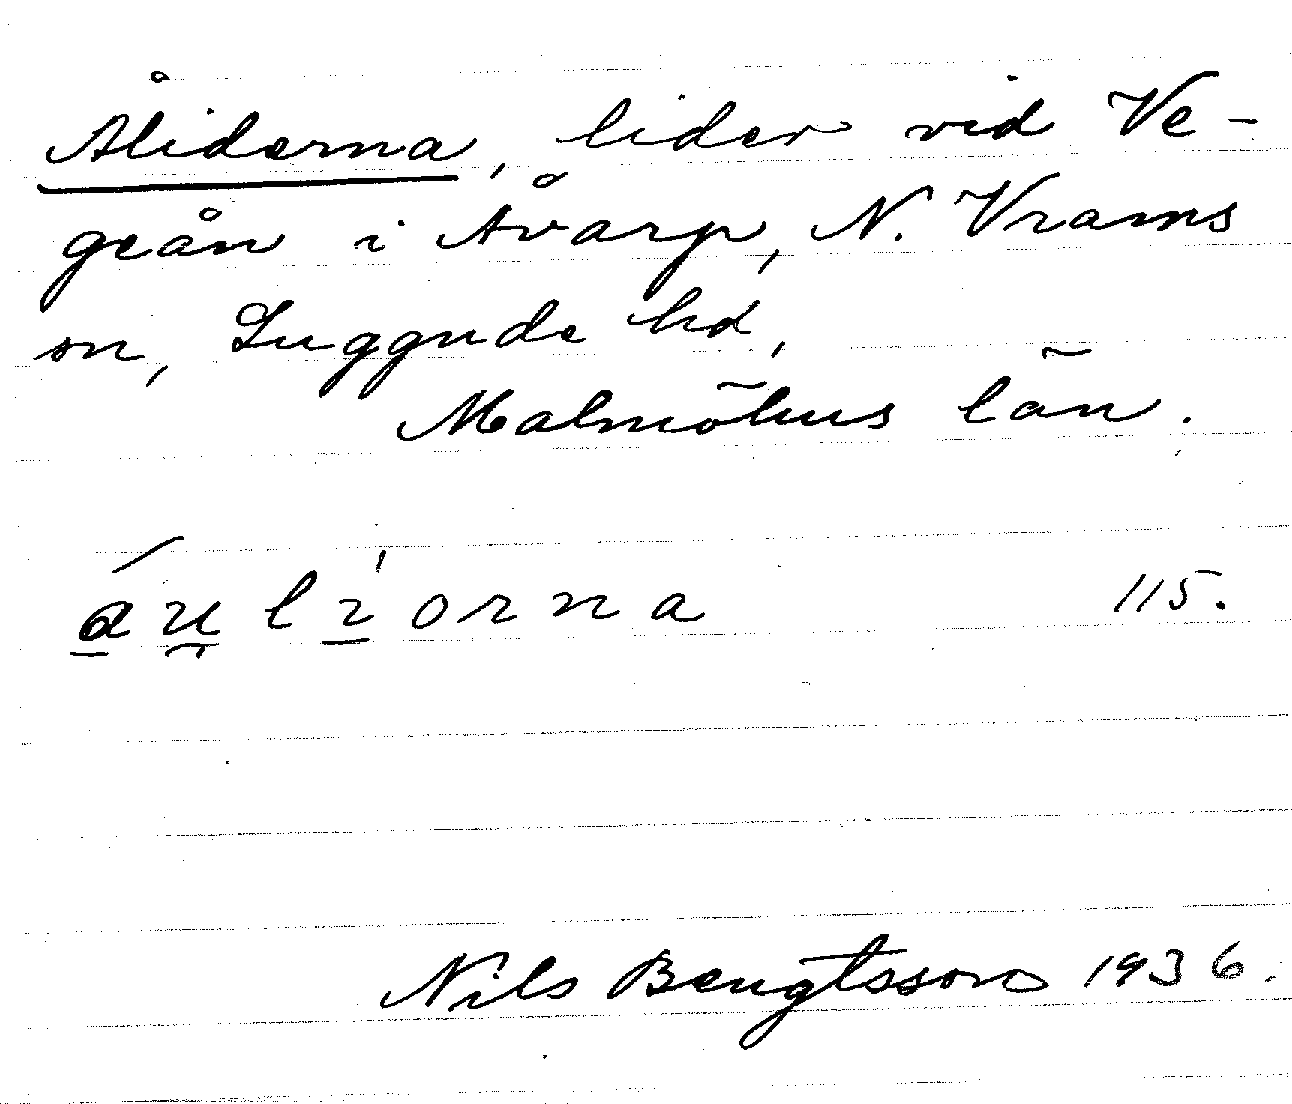 Åliderna, lider vid Ve-
geån i Åvarp, N. Vrams
sn, Luggude hd,
Malmöhus län.
áu̯lıornа 115.
Nils Bengtsson 1936.